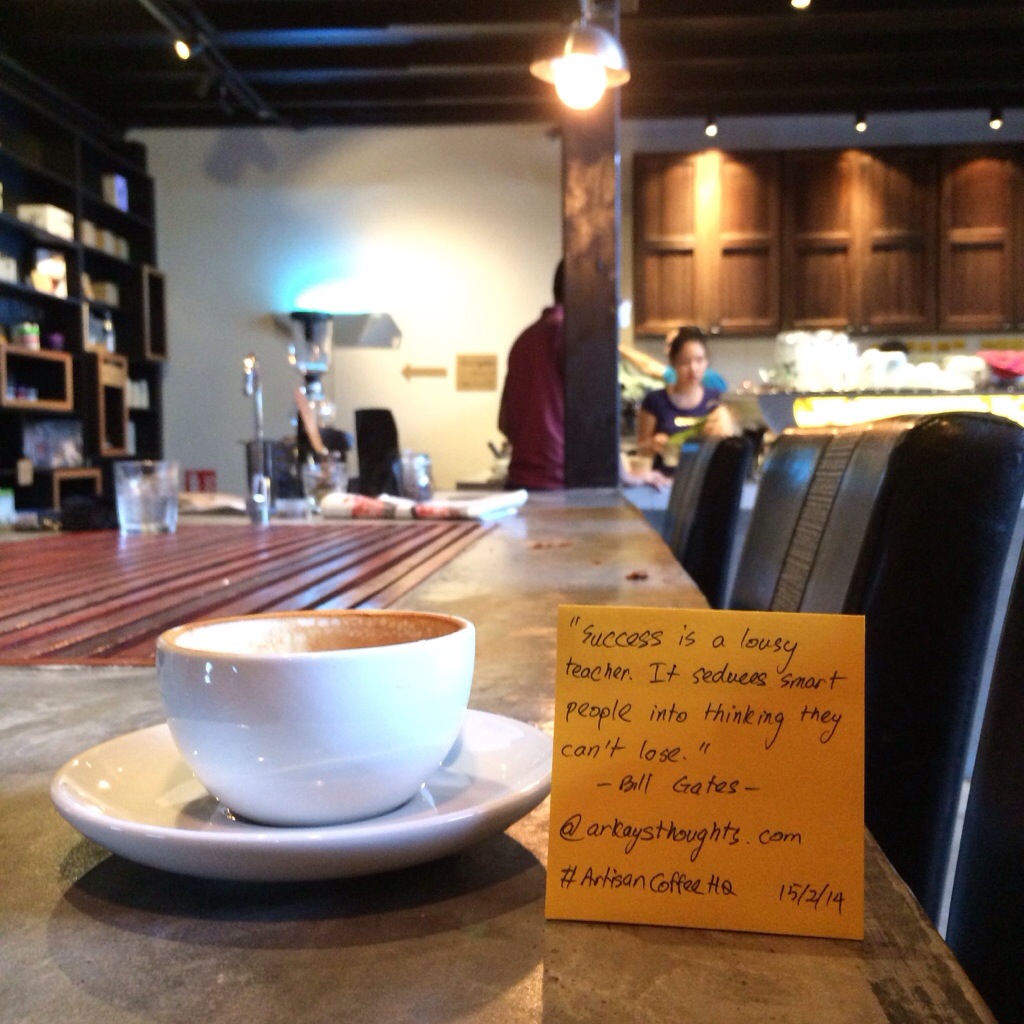 "Success is a lousy
teacher. It seduces smart
people into thinking they
can't lose."
- Bill Gates -
@arkaysthoughts.com
#ArtisanCoffeeHQ 15/2/14